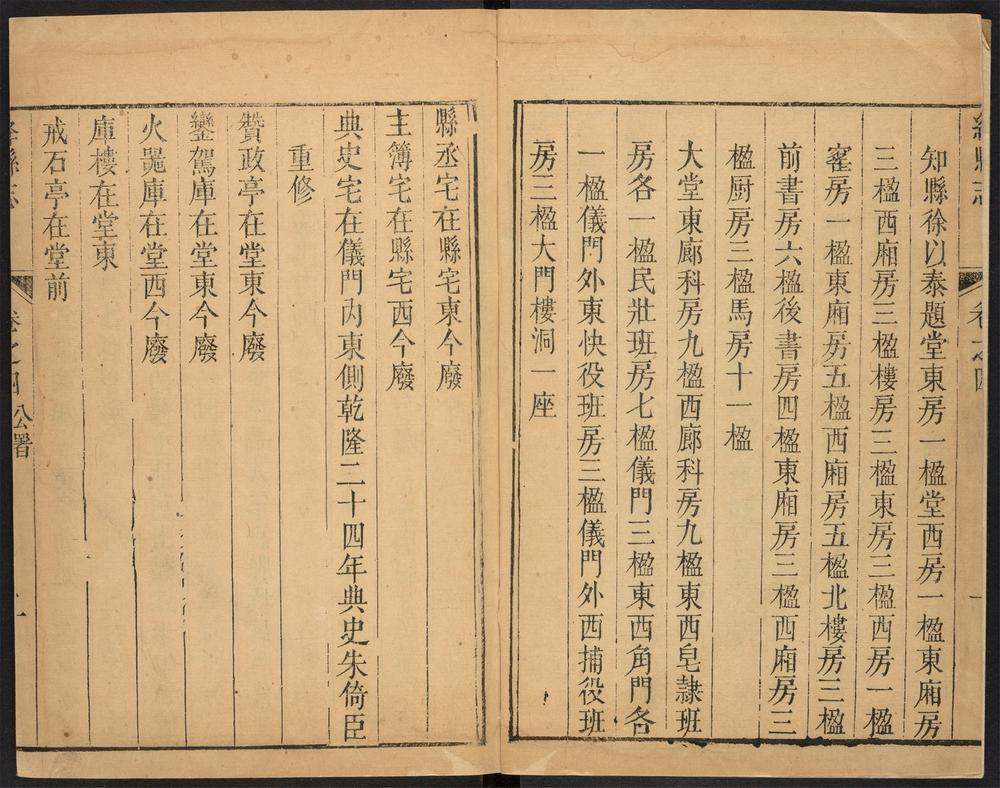 知縣徐以泰題堂東房一楹堂西房一楹東廂房
三楹西廂房三楹樓房三楹東房三楹西房一楹
窰房一楹東廂房五楹西廂房五楹北樓房三楹
前書房六楹後書房四楹東廂房三楹西廂房三
楹厨房三楹馬房十一楹
大堂東廊科房九楹西廊科房九楹東西皂隷班
房各一楹民壯班房七楹儀門三楹東西角門各
一楹儀門外東快役班房三楹儀門外西捕役班
房三楹大門樓洞一座
縣丞宅在縣宅東今廢
主簿宅在縣宅西今廢
典史宅在儀門內東側乾隆二十四年典史朱倚臣
重修
贊政亭在堂東今廢
鑾駕庫在堂東今廢
火噐庫在堂西今廢
庫樓在堂東
戒石亭在堂前
縣志 卷之四 公署